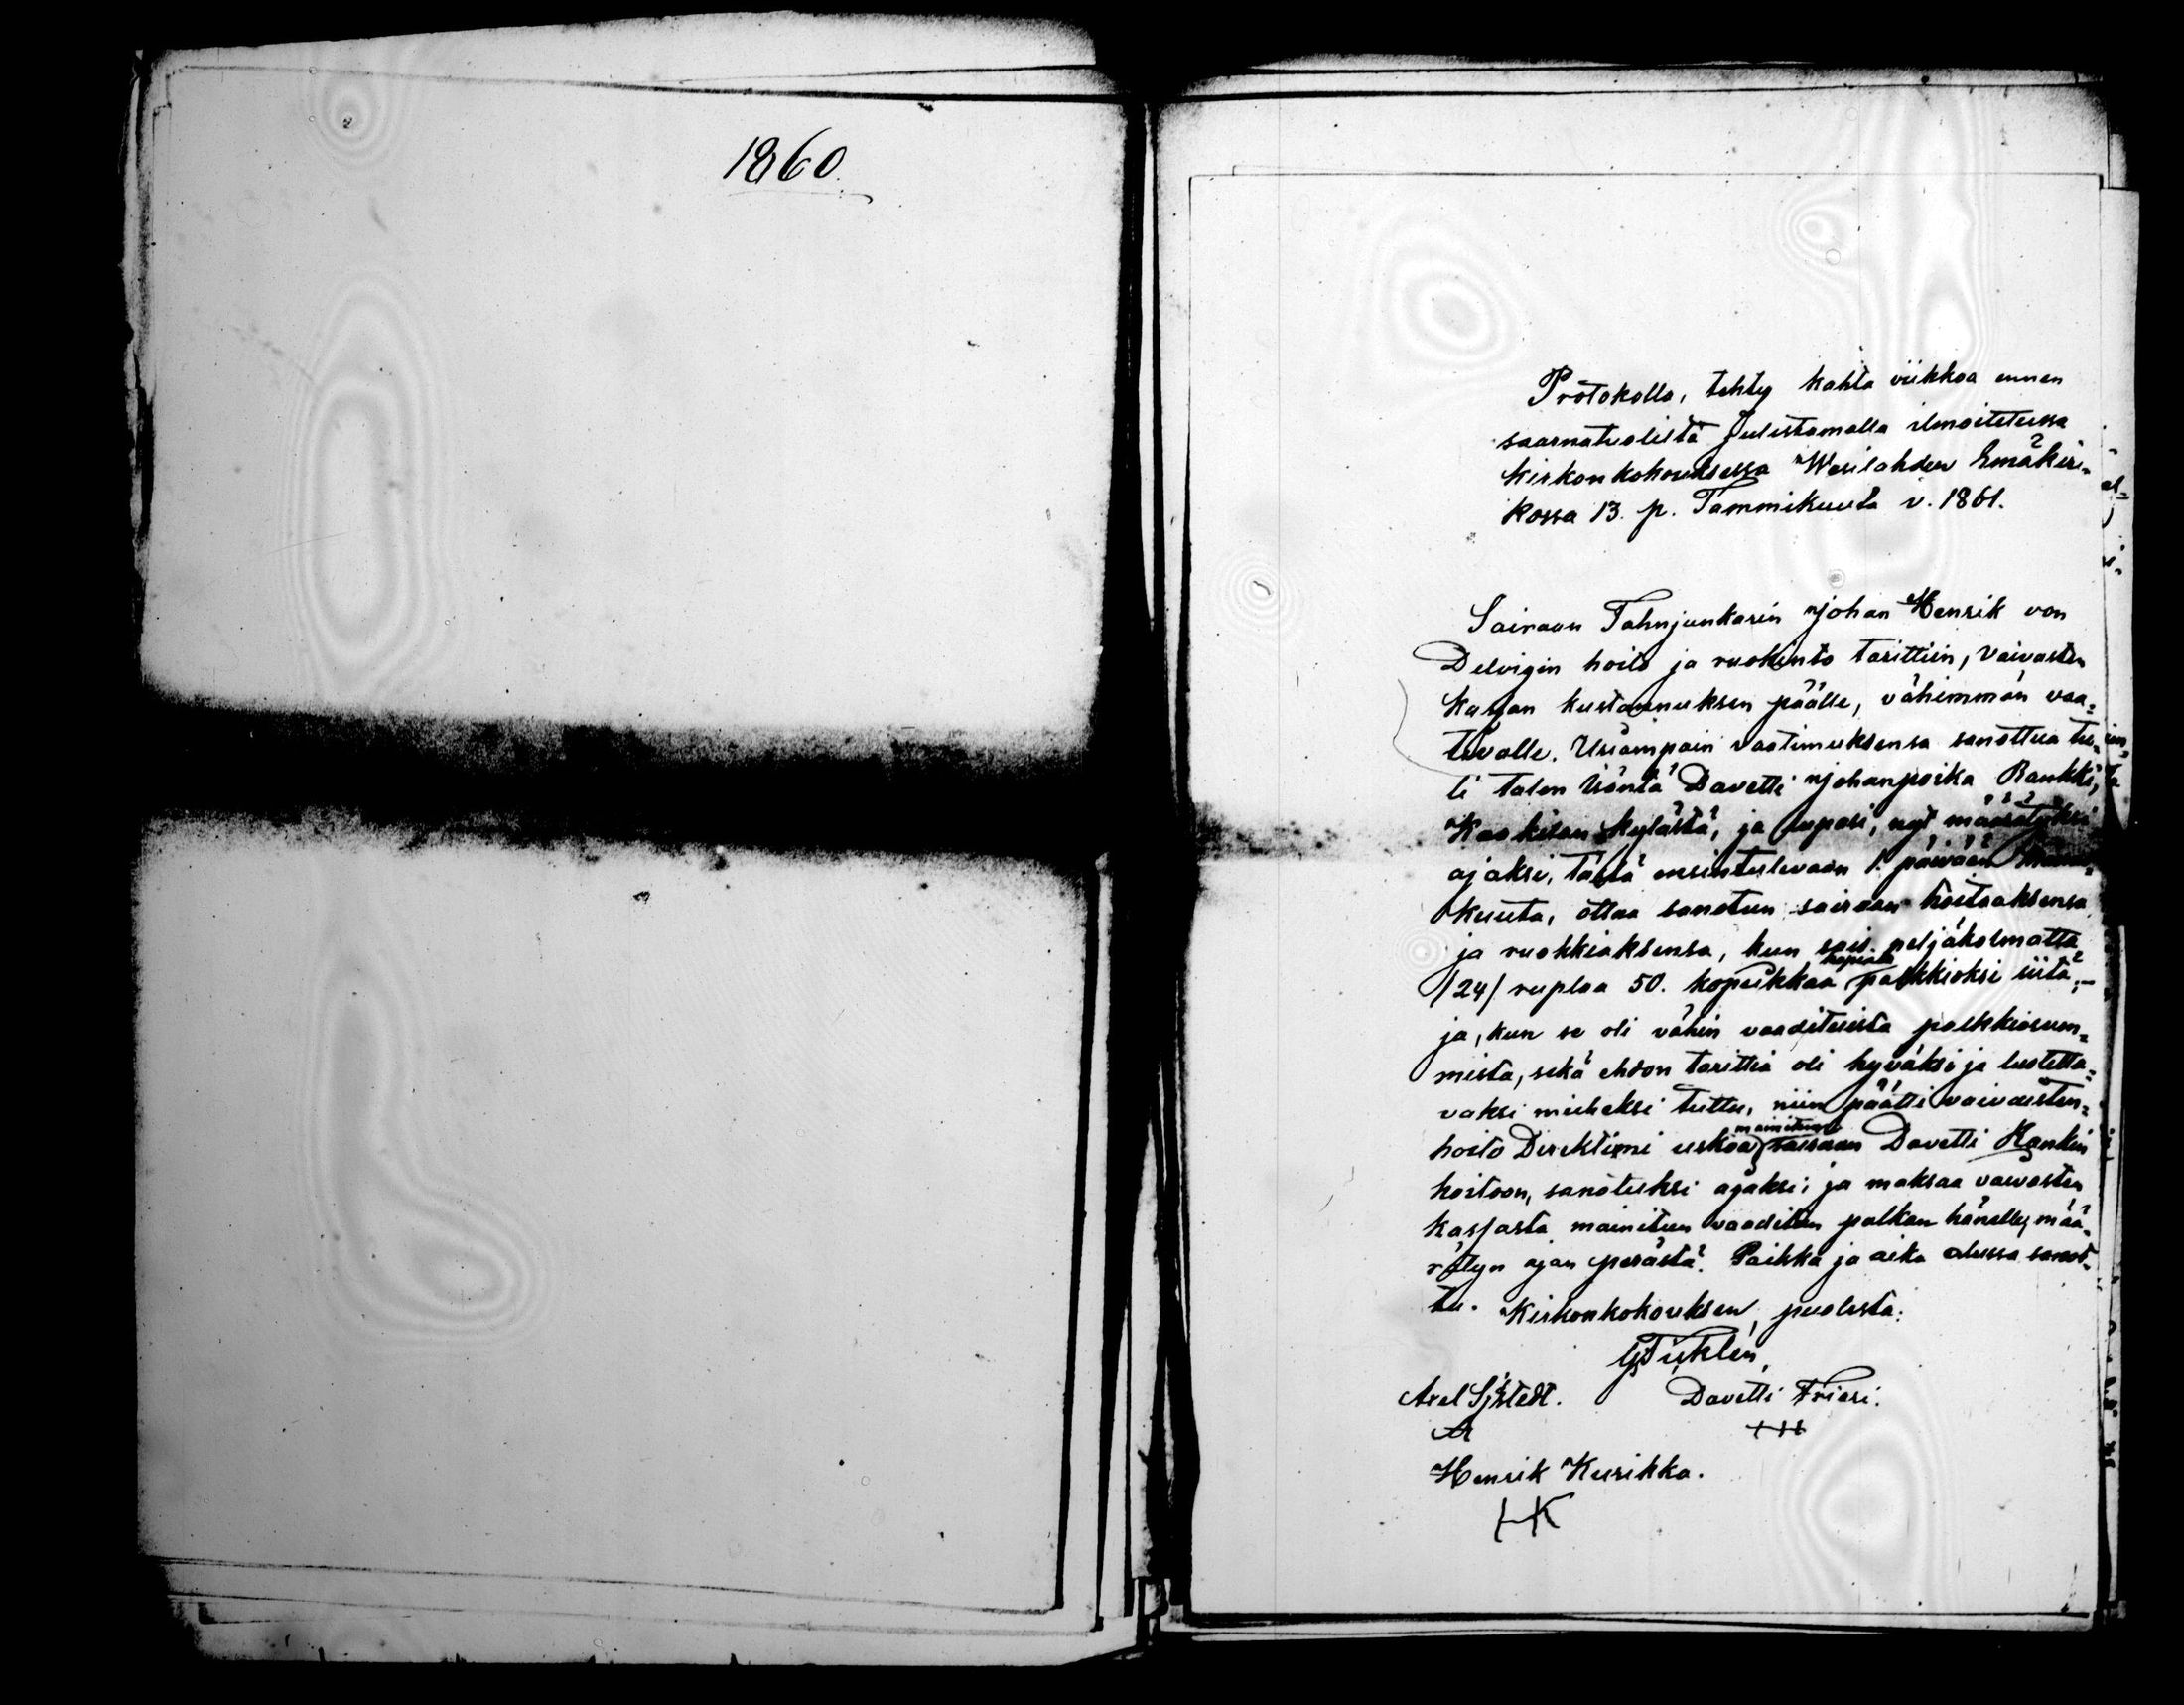 1860.
Protokolla, tehty kahta viikkoa ennen
saarnatuolilta Julistamalla ilmoitetussa
kirkonkokouksessa Wesilahden Emäkir¬
kossa 13. p. Tammikuuta v. 1861.
Sairaan Fahnjunkarin Johan Henrik von
Delvigin hoito ja ruokinto tarittiin, Vaivasten
kassan kustannuksen päälle, vähimmän vaa¬
tivalle. Usiampain vaatimuksensa sanottua tu¬
li talon Isäntä Davetti Johanpoika Rankki,
Kaakilan kylästä, ja lupasi, nyt määrätyksi
ajaksi, tästä ensintulevaan 1. päivään
kuuta, ottaa sanotun sairaan hoitaaksensa
ja ruokkiaksensa, kun sais neljäkolmatta
/24/ ruplaa 50. kopeikkaa hopiata palkkioksi siitä;—
ja, kun se oli vähin vaadituista palkkiosum¬
mista, sekä ehdon tarittia oli hyväksi ja luotetta¬
vaksi mieheksi tuttu, niin päätti vaivaisten¬
hoito Direktioni uskoa mainitun sairaan Davetti Rankin
hoitoon, sanotuksi ajaksi; ja maksaa vaivasten
kassasta mainitun vaaditun palkan hänelle, mää¬
rätyn ajan perästä. Paikka ja aika alussa sanot¬
tu. Kirkonkokouksen puolesta:
Axel Sjöstedt. Davetti Friari.
Henrik Kurikka.
HK